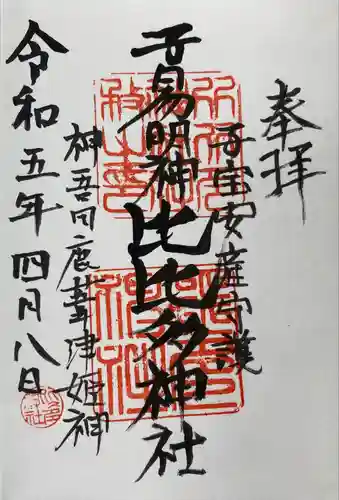 奉拝
子宝安産守護
子易明神 比比多神社
神吾田鹿葦津姫神
令和五年四月八日